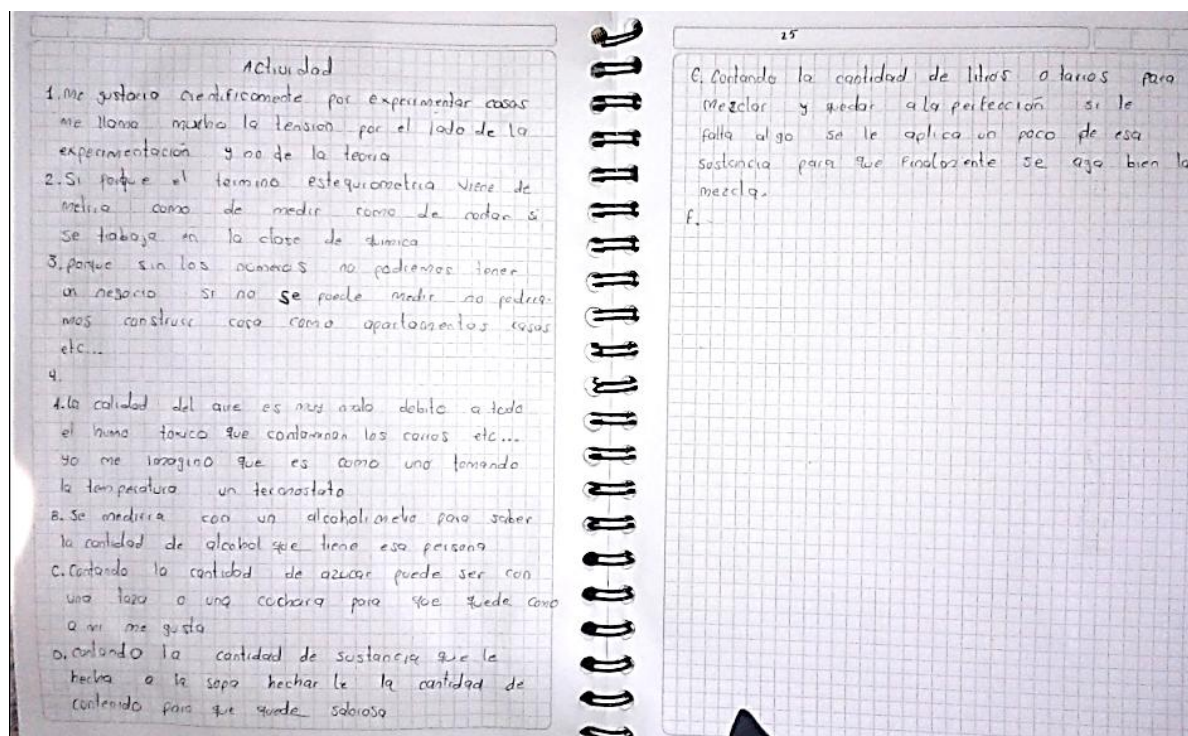 Actividad
1. Me gustaria cientificamente por experimentar cosas
me llama mucho la tension por el lado de la
experimentación y no de la teoria
2. Si porque el termino estequiometria viene de
metria como de medir como de contar si
se trabaja en la clase de quimica
3. porque sin los numeros no podremos tener
un negocio si no se puede medir no podria-
mos construir cosa como apartamentos casas
etc...
4.
A. la calidad del aire es muy malo debito a todo
el humo toxico que contaminan los carros etc...
yo me imagino que es como uno tomando
la temperatura un termostato
B. Se mediria con un alcoholimetro para saber
la cantidad de alcohol que tiene esa persona
C. Contando la cantidad de azucar puede ser con
una taza o una cuchara para que quede como
a mi me gusta
D. contando la cantidad de sustancia que le
hecha a la sopa hechar le la cantidad de
contenido para que quede sabroso
25
E. Contando la cantidad de litros o tarros para
mezclar y quedar a la perfección si le
falta algo se le aplica un poco de esa
sustancia para que finalmente se aga bien la
mezcla.
F.